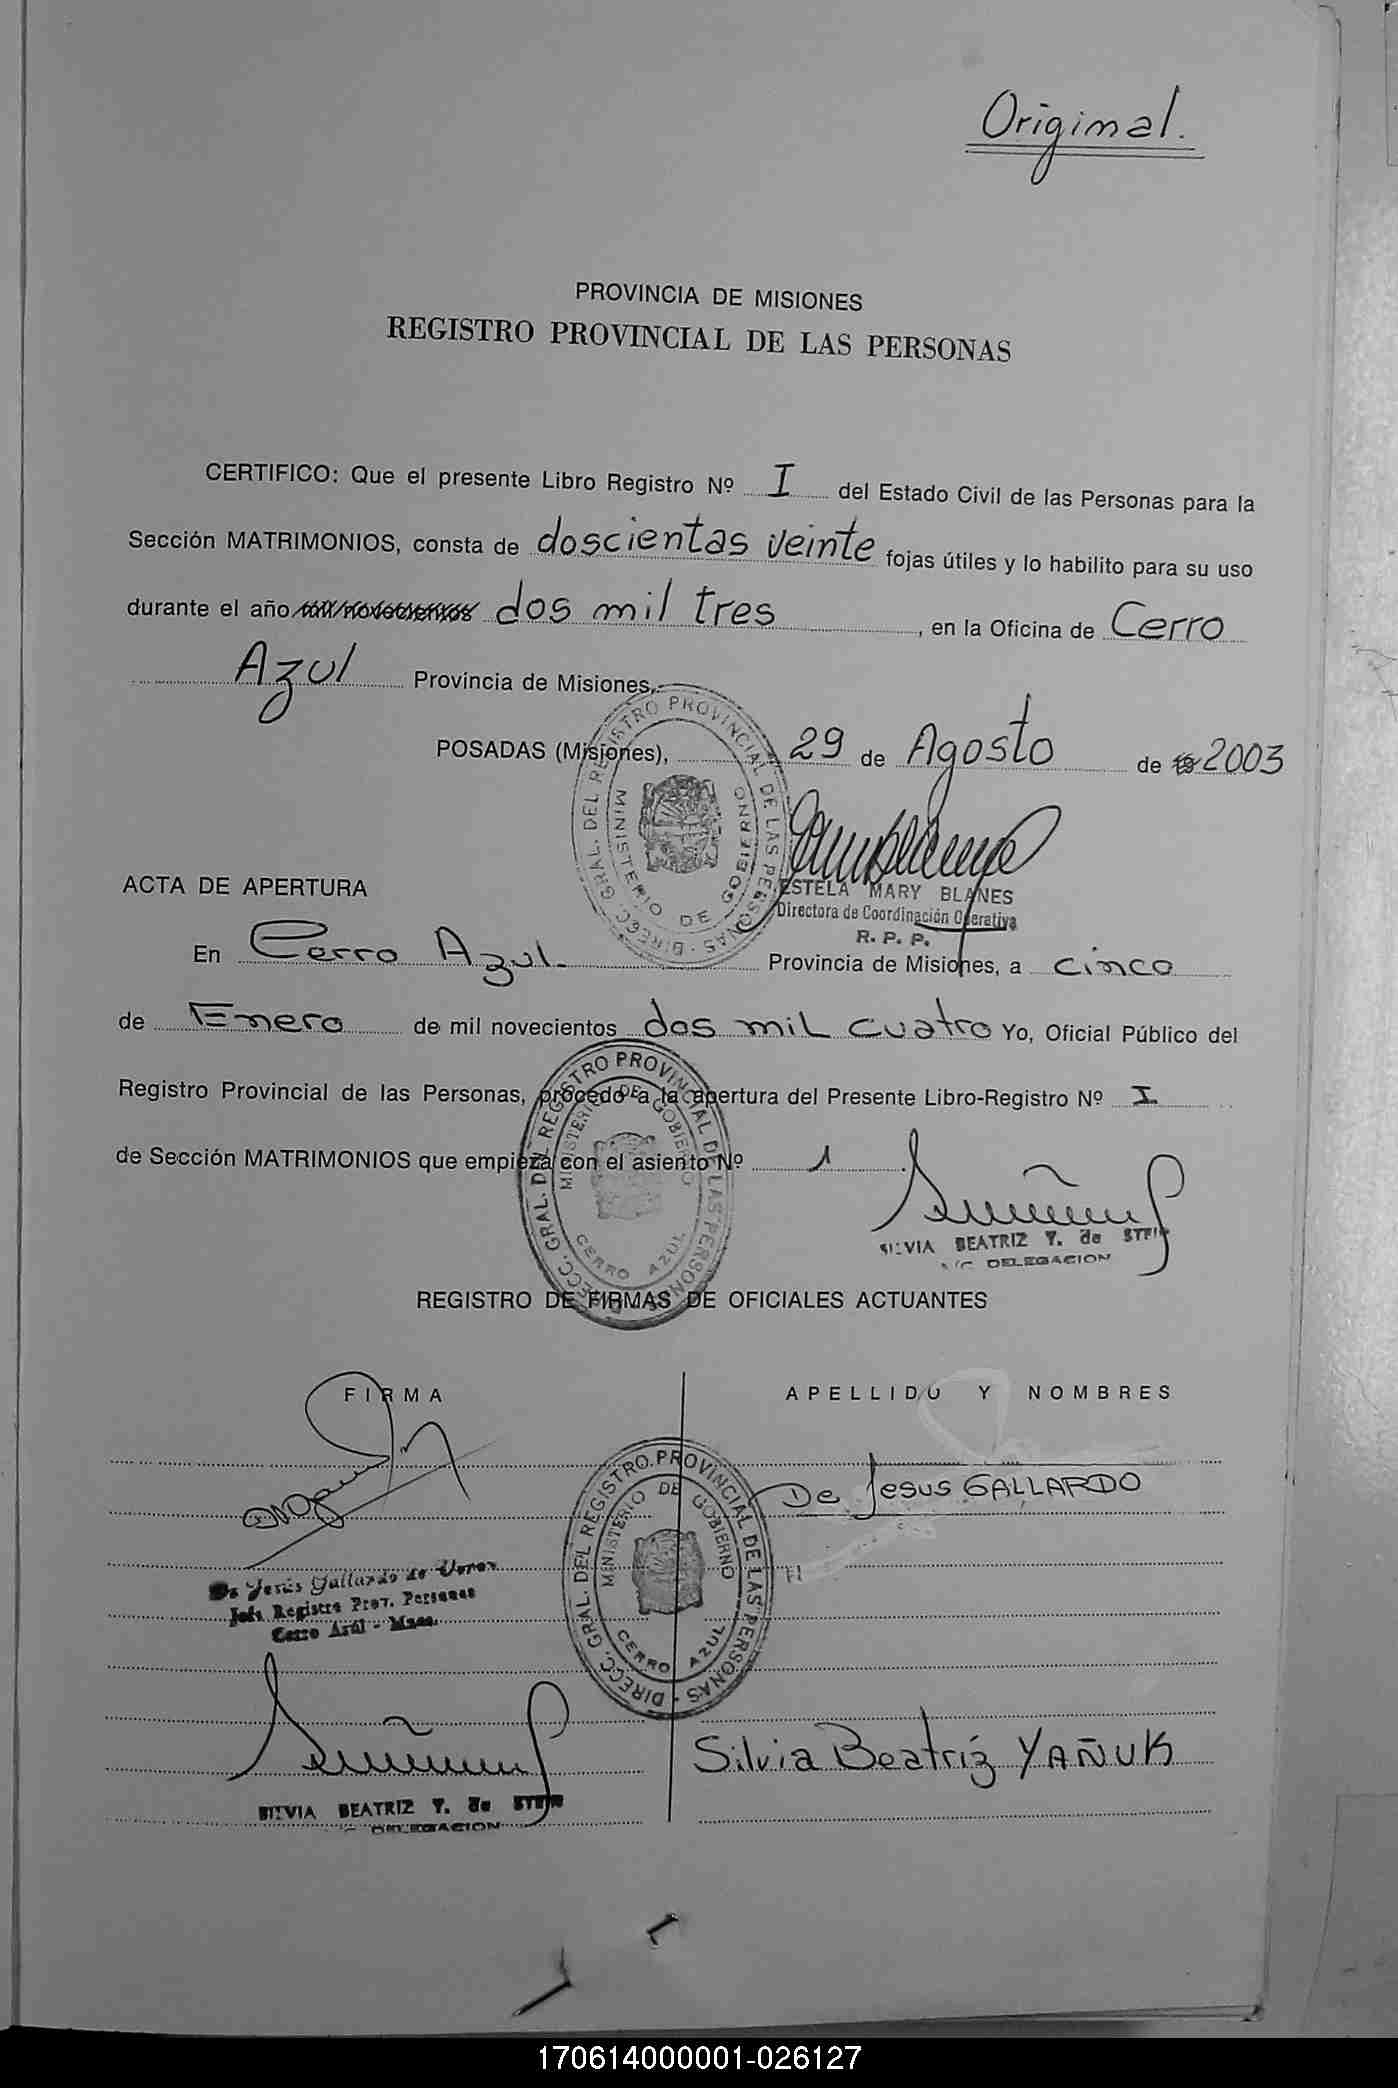 Original.
PROVINCIA DE MISIONES
REGISTRO PROVINCIAL DE LAS PERSONAS
CERTIFICO: Que el presente Libro Registro Nº I del Estado Civil de las Personas para la
Sección MATRIMONIOS, consta de doscientas veinte fojas útiles y lo habilito para su uso
durante el año mil novecientos dos mil tres, en la Oficina de Cerro
Azul Provincia de Misiones.
POSADAS (Misiones), 29 de Agosto de 19 2003
DIRECC. GRAL. DEL REGISTRO PROVINCIAL DE LAS PERSONAS
MINISTERIO DE GOBIERNO
ESTELA MARY BLANES
Directora de Coordinación Operativa
R. P. P.
ACTA DE APERTURA
En Cerro Azul. Provincia de Misiones, a cinco
de Enero de mil novecientos dos mil cuatro Yo, Oficial Público del
Registro Provincial de las Personas, procedo a la apertura del Presente Libro-Registro Nº I
de Sección MATRIMONIOS que empieza con el asiento Nº 1
DIRECC. GRAL. DEL REGISTRO PROVINCIAL DE LAS PERSONAS
MINISTERIO DE GOBIERNO
CERRO AZUL
SILVIA BEATRIZ Y. de STEIN
A/C. DELEGACION
REGISTRO DE FIRMAS DE OFICIALES ACTUANTES
FIRMA APELLIDO Y NOMBRES
De Jesus GALLARDO
DIRECC. GRAL. DEL REGISTRO PROVINCIAL DE LAS PERSONAS
MINISTERIO DE GOBIERNO
CERRO AZUL
De Jesús Gallardo de
Jefa Registro Prov. Personas
Cerro Azul - Mnes.
Silvia Beatriz YAÑUK
SILVIA BEATRIZ Y. de STEIN
DELEGACION
170614000001-026127